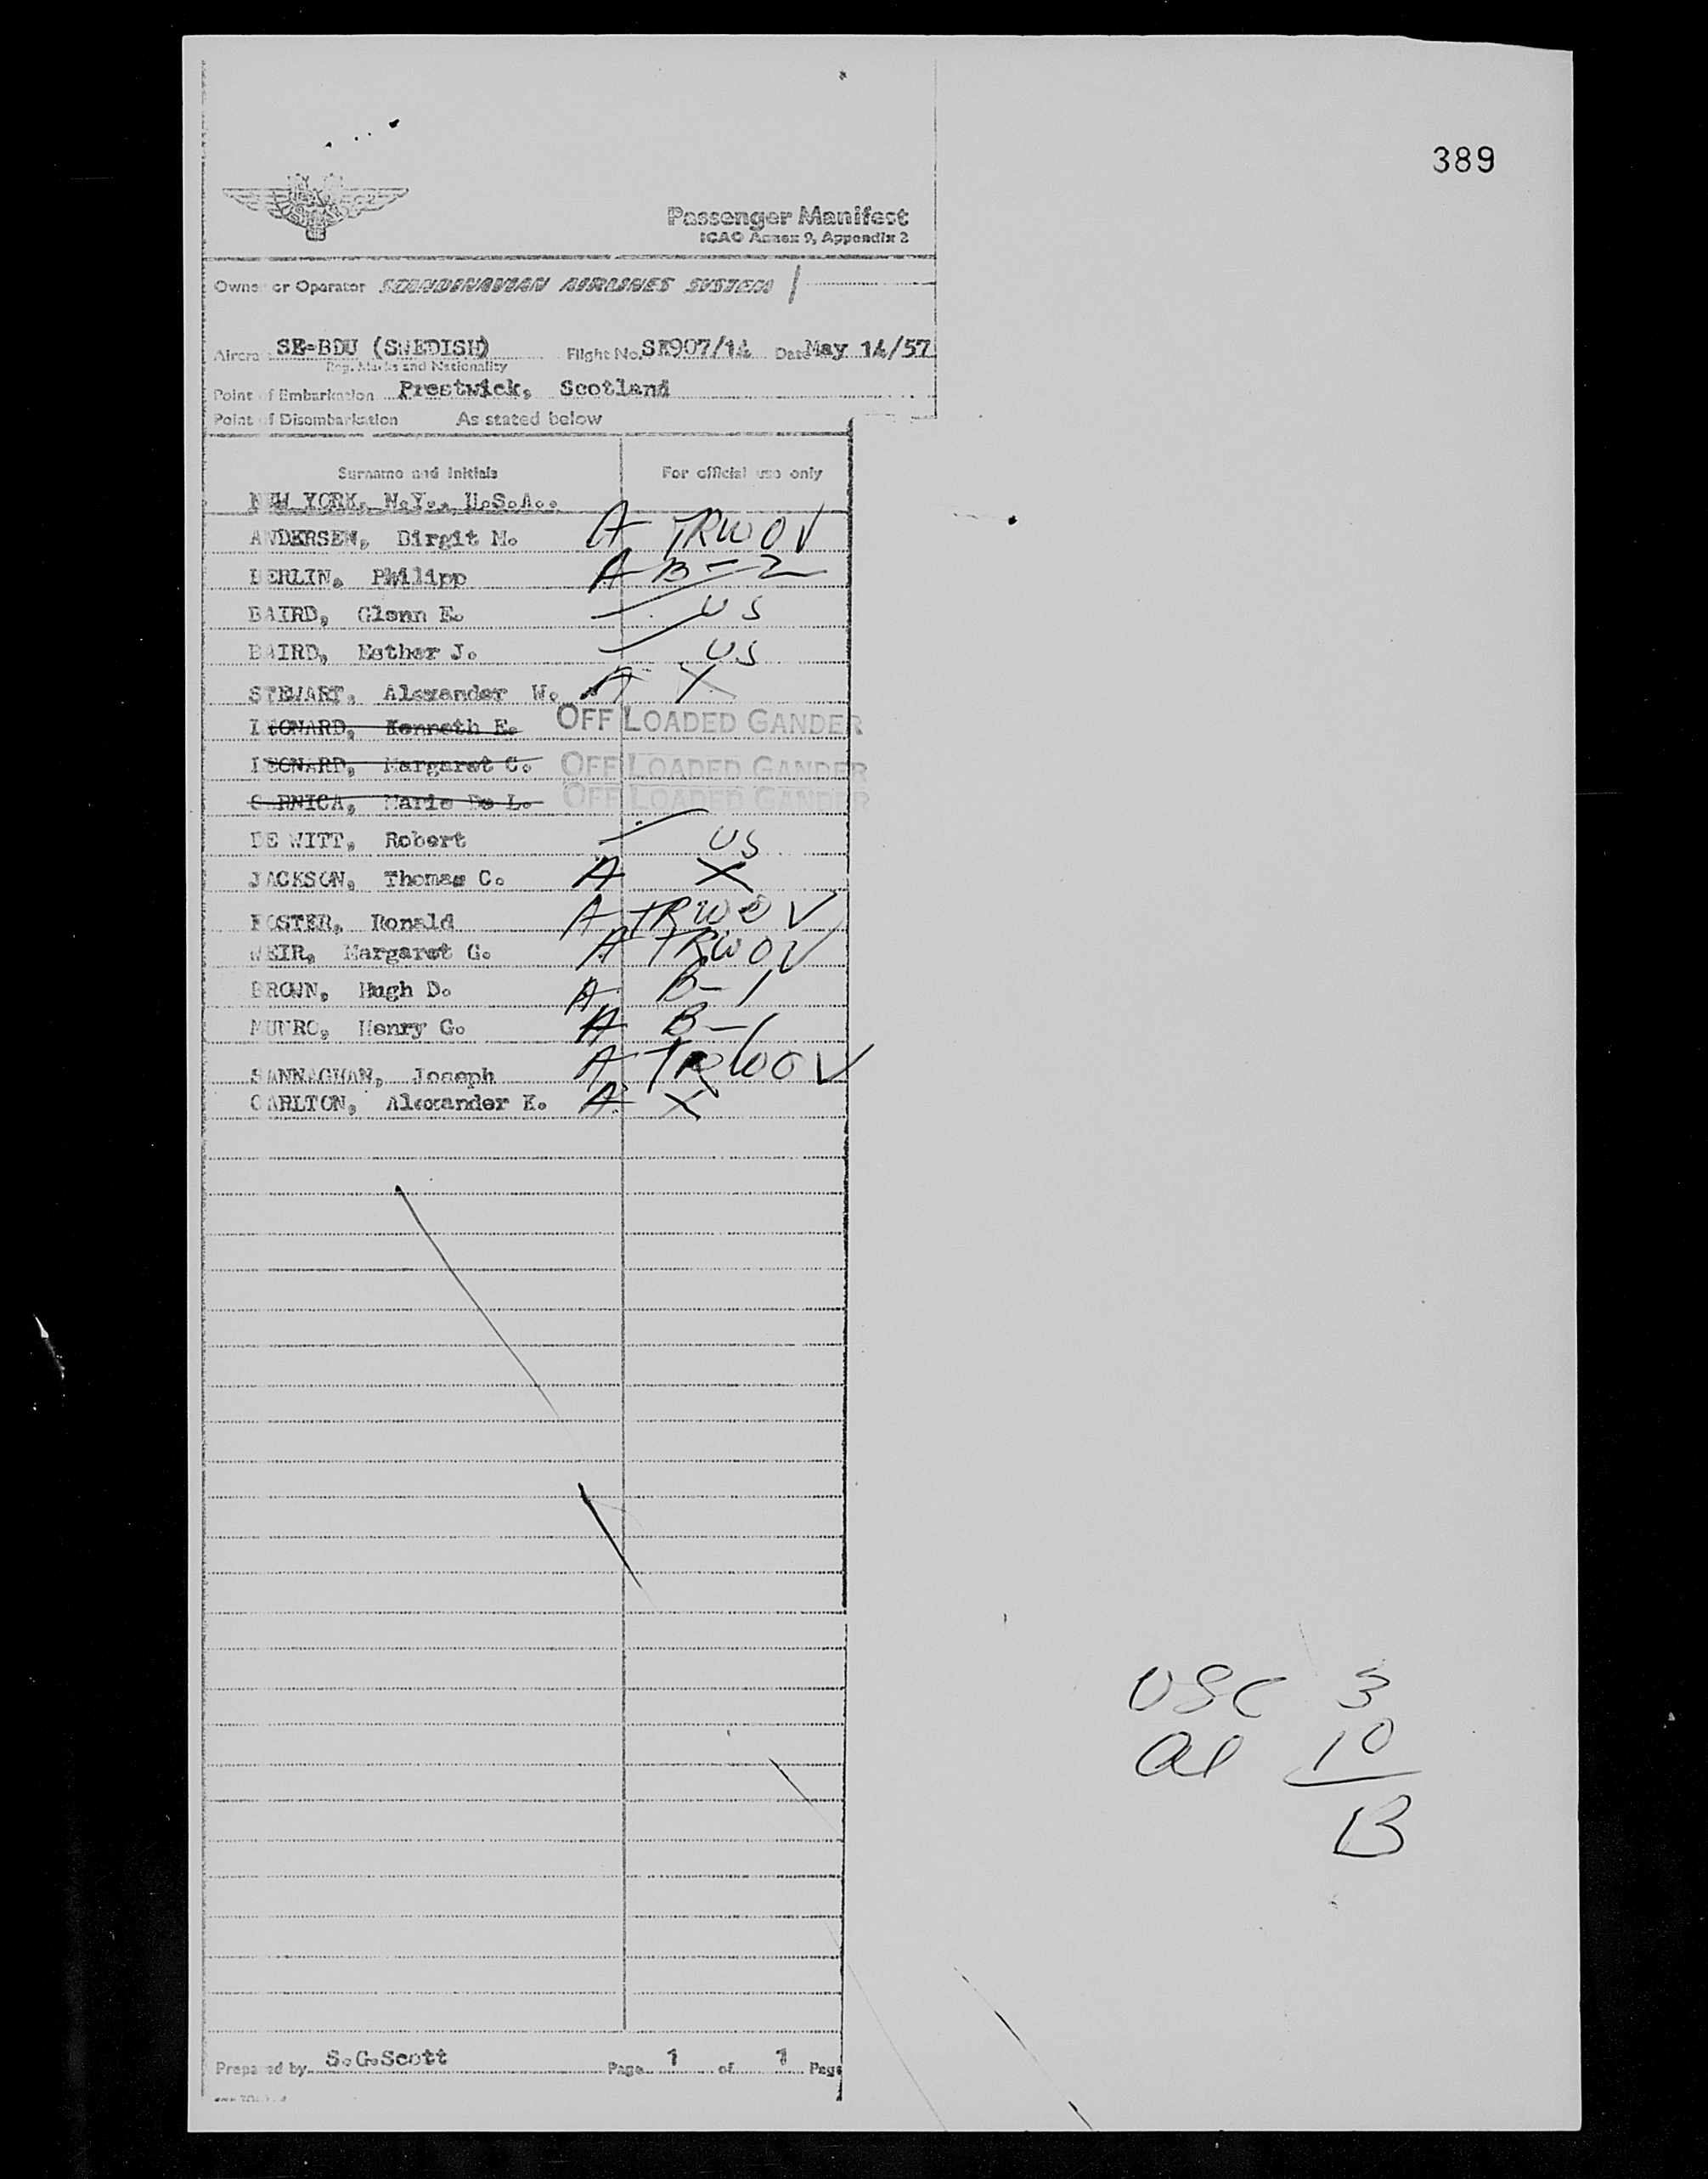 389
Passenger Manifest
ICAO Annex 9, Appendix 2
Owner or Operator SCANDINAVIAN AIRLINES SYSTEM
Aircra SE-BDU (SWEDISH) Flight No. SK907/14 Date May 14/57
Reg. Marks and Nationality
Point of Embarkation Prestwick, Scotland
Point of Disembarkation As stated below
Surname and Initials For official use only
NEW YORK, N.Y., U.S.A..
ANDERSEN, Birgit M. A TRWOV
BERLIN, Philipp A B-2
BAIRD, Glenn E. US
BAIRD, Esther J. US
STEWART, Alexander W. A X
LEONARD, Kenneth E. OFF LOADED GANDER
LEONARD, Margaret C. OFF LOADED GANDER
Marie De L. OFF LOADED GANDER
DE WITT, Robert US
JACKSON, Thomas C. A X
FOSTER, Ronald A TRWOV
WEIR, Margaret G. A TRWOV
BROWN, Hugh D. A B-1
MUNRO, Henry G. A B-1
SANNAGHAN, Joseph A TRWOV
CARLTON, Alexander K. A X
USC 3
al 10
13
Prepared by S.G.Scott Page 1 of 1 Page